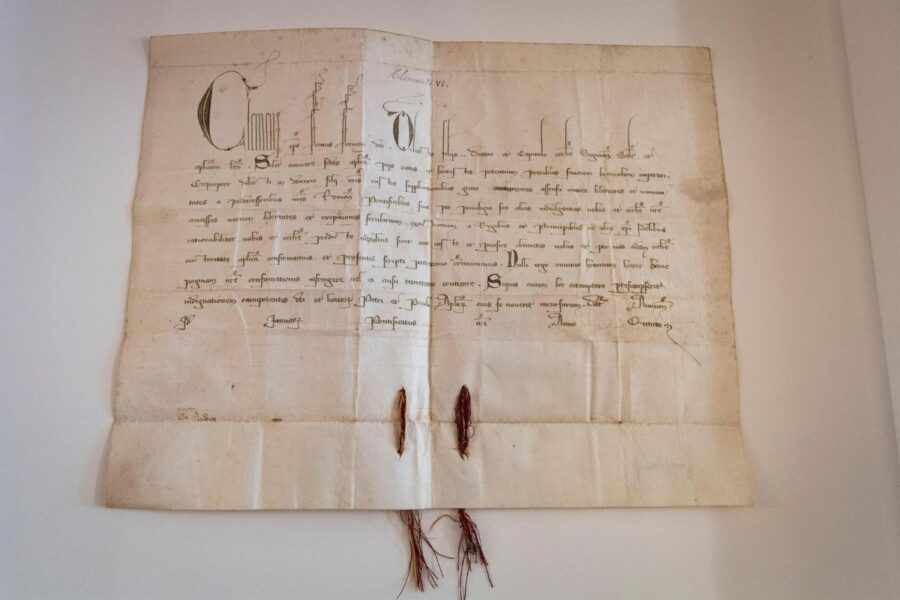 Clemente VI.
Clemens eps seruus seruoꝝ dei . Dil filijs . Decano et Capitulo ecclie Salt et
aplicam ben . Solet annuere sedes aplica pijs uotis et honestis petentium precibus fauorem beniuolum impertiri .
Eapropter dilecti in domino filij uris iustis supplicationibus grato concurrentes assensu omnes libertates et immuni
tates a predecessoribus nris Romanis Pontificibus siue per priuilegia seu alias indulgentias uobis et ecclie ure
concessas necnon libertates et exemptiones secularium exactionum a Regibus et Principibus ac alijs xpi fidelibus
rationabiliter uobis et ecclie predicte indultas sicut eas iuste et pacifice obtinetis uobis et per uos eidem ecclie
auctoritate aplica confirmamus et presentis scripti patrocinio communimus . Nulli ergo omnino hominum liceat hanc
paginam nre confirmationis infringere uel ei ausu temerario contraire . Siquis autem hoc attemptare presumpserit
indignationem omnipotentis dei et beatoꝝ Petri et Pauli Aploꝝ eius se nouerit incursurum . Dat Auinion
Januarꝝ Pontificatus nri Anno Quarto